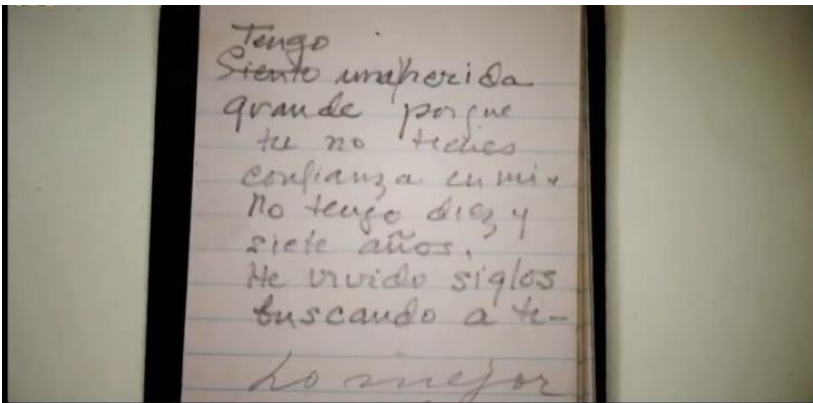 Tengo
Siento una herida
grande porque
tu no tienes
confianza en mi.
No tengo diez y
siete años.
He vivido siglos
buscando a ti-
Lo mejor